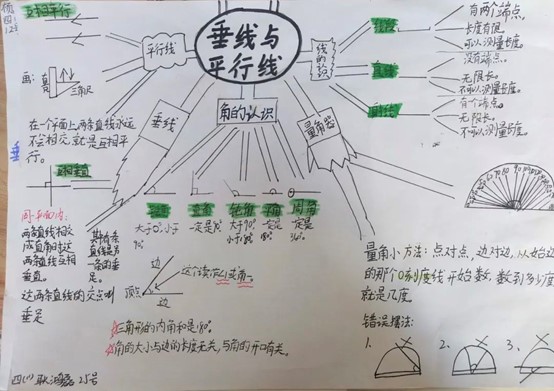 互相平行
平行线
垂线与
平行线
线的认识
线段
有两个端点。
长度有限。
可以测量长度。
直线
没有端点。
无限长。
不可以测量长度。
射线
有个端点。
无限长。
不可以测量长度。
画:
三角尺
在个平面上两条直线永远
不会相交,就是互相平
行。
垂线
角的认识
量角器
互相垂直
同一平面内:
两条直线相交
成直角时,这
两条直线互相
垂直。
其中一条
直线是另
一条的垂
足。
这两条直线的交点叫
垂足
锐角
直角
钝角
平角
周角
大于0°,小于
90°
一定是90°
大于90°
小于180°
一定是
180°
一定是
360°
边
顶点
边
这个读作∠1或角一。
三角形的内角和是180°
角的大小与边的长度无关,与角的开口有关。
量角小方法:点对点,边对边,从始边
的那个0刻度线开始数,数到多少度
就是几度。
错误摆法:
1.
2.
3.
四(1) 耿鸿磊 25号